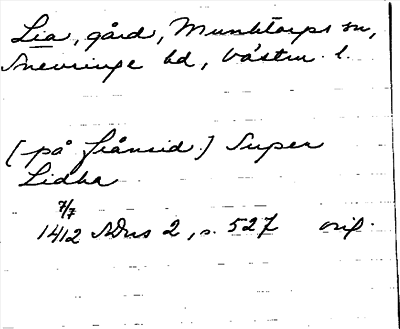 Lia, gård, Munktorps sn,
Snevringe hd, Västm. l.
[på frånsid.] Super
Lidha
7/7
1412 SDns 2, s. 527 orig.